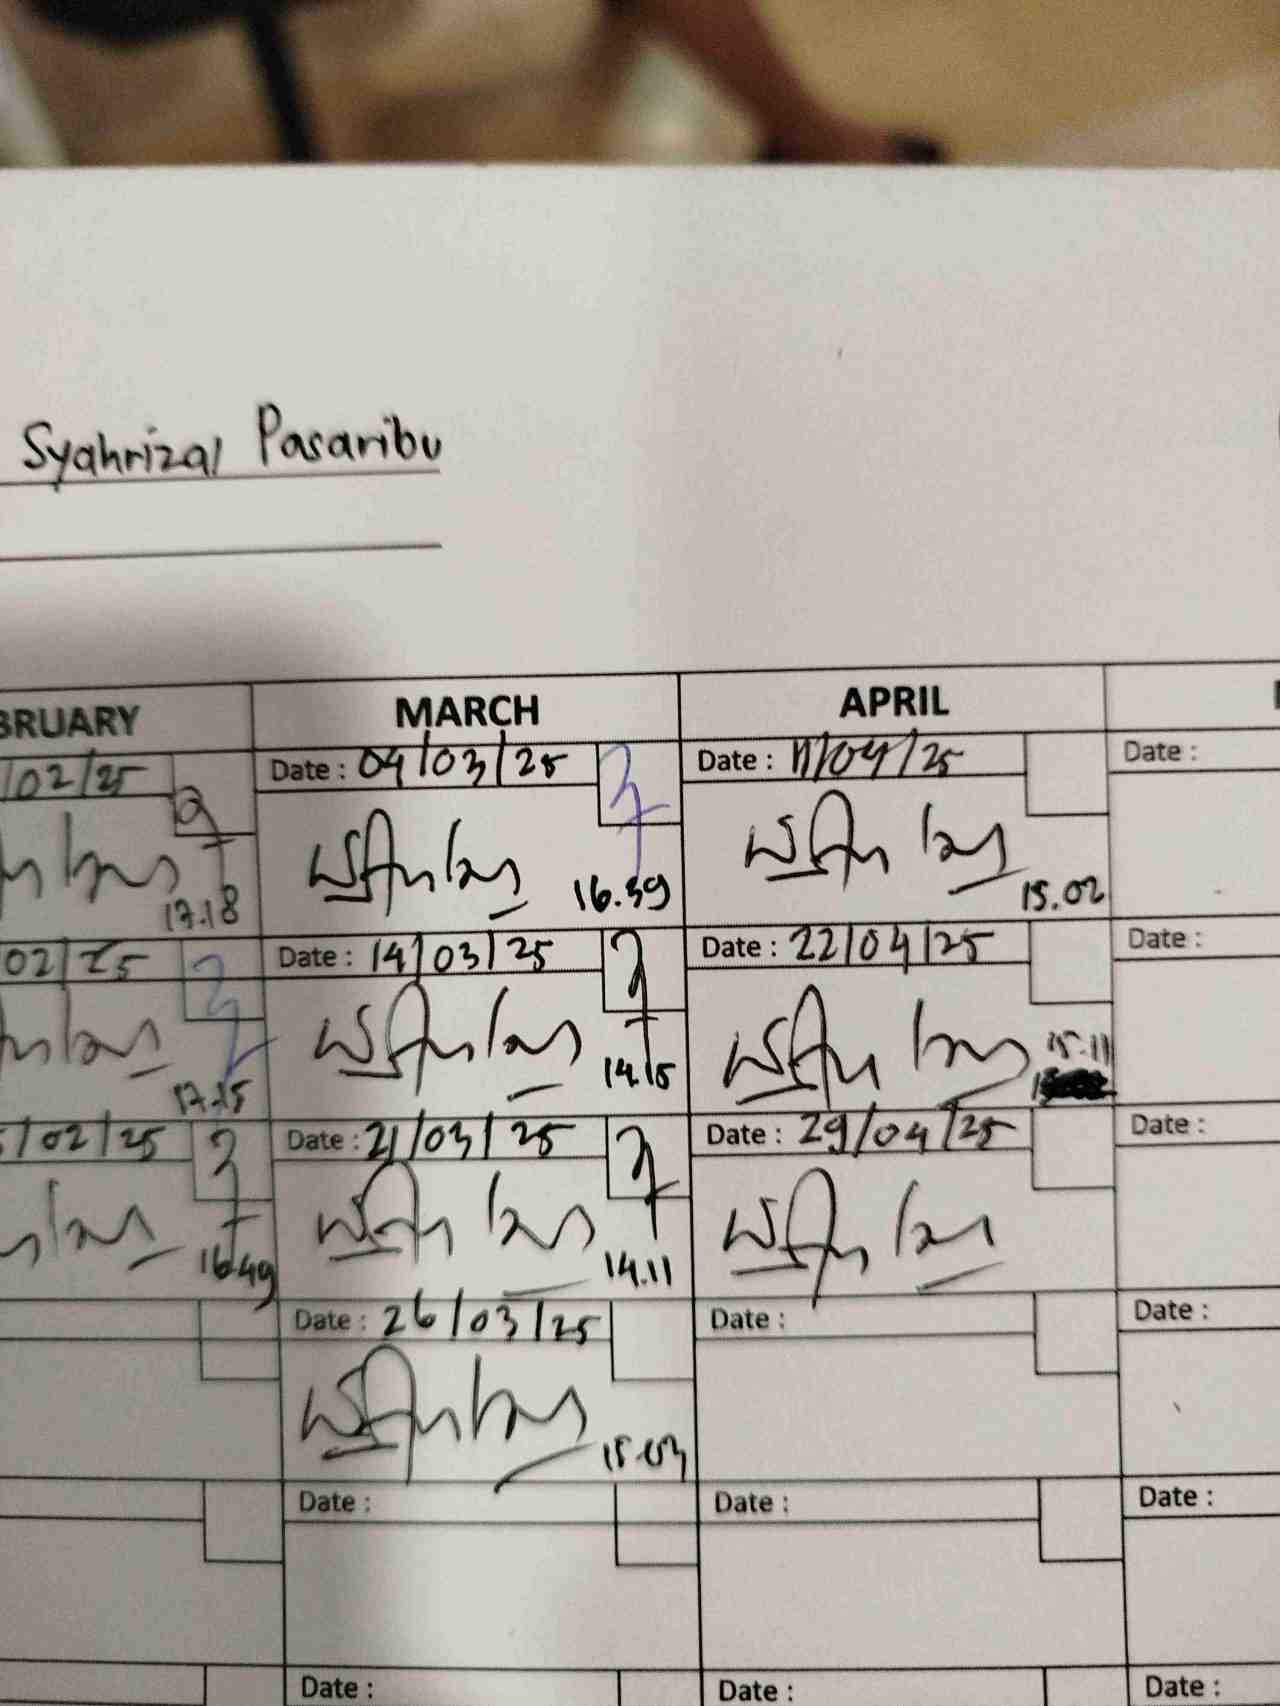 Syahrizal Pasaribu
BRUARY MARCH APRIL
/02/25 Date : 04/03/25 Date : 11/04/25 Date :
17.18 16.39 15.02
02/25 Date : 14/03/25 Date : 22/04/25 Date :
17.15 14.15 15.11
/02/25 Date : 21/03/25 Date : 29/04/25 Date :
16.49 14.11
Date : 26/03/25 Date : Date :
15.03
Date : Date : Date :
Date : Date : Date :